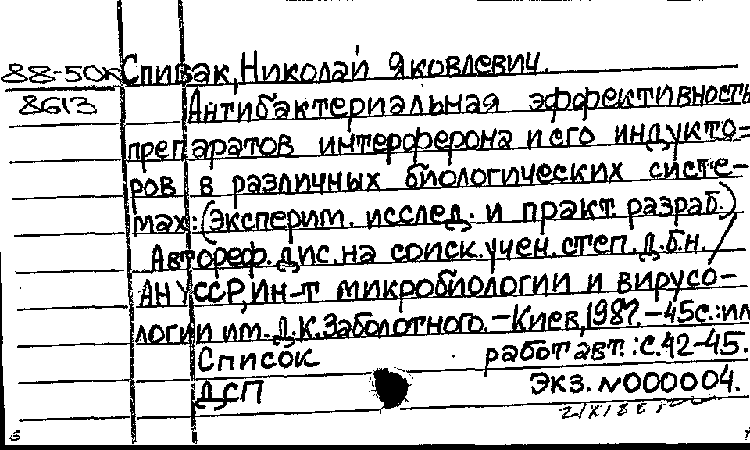 88-50к Спивак, Николай Яковлевич.
8613
Антибактериальная эффективность
препаратов интерферона и его индукто=
ров в различных биологических систе-
мах: (Эксперим. исслед. и практ. разраб.)
Автореф. дис. на соиск. учен. степ. д.б.н. /
АН УССР, Ин-т микробиологии и вирусо-
логии им. Д.К. Заболотного. - Киев, 1987. - 45с.: ил
Список работ авт.: с. 42-45.
ДСП Экз. №000004.